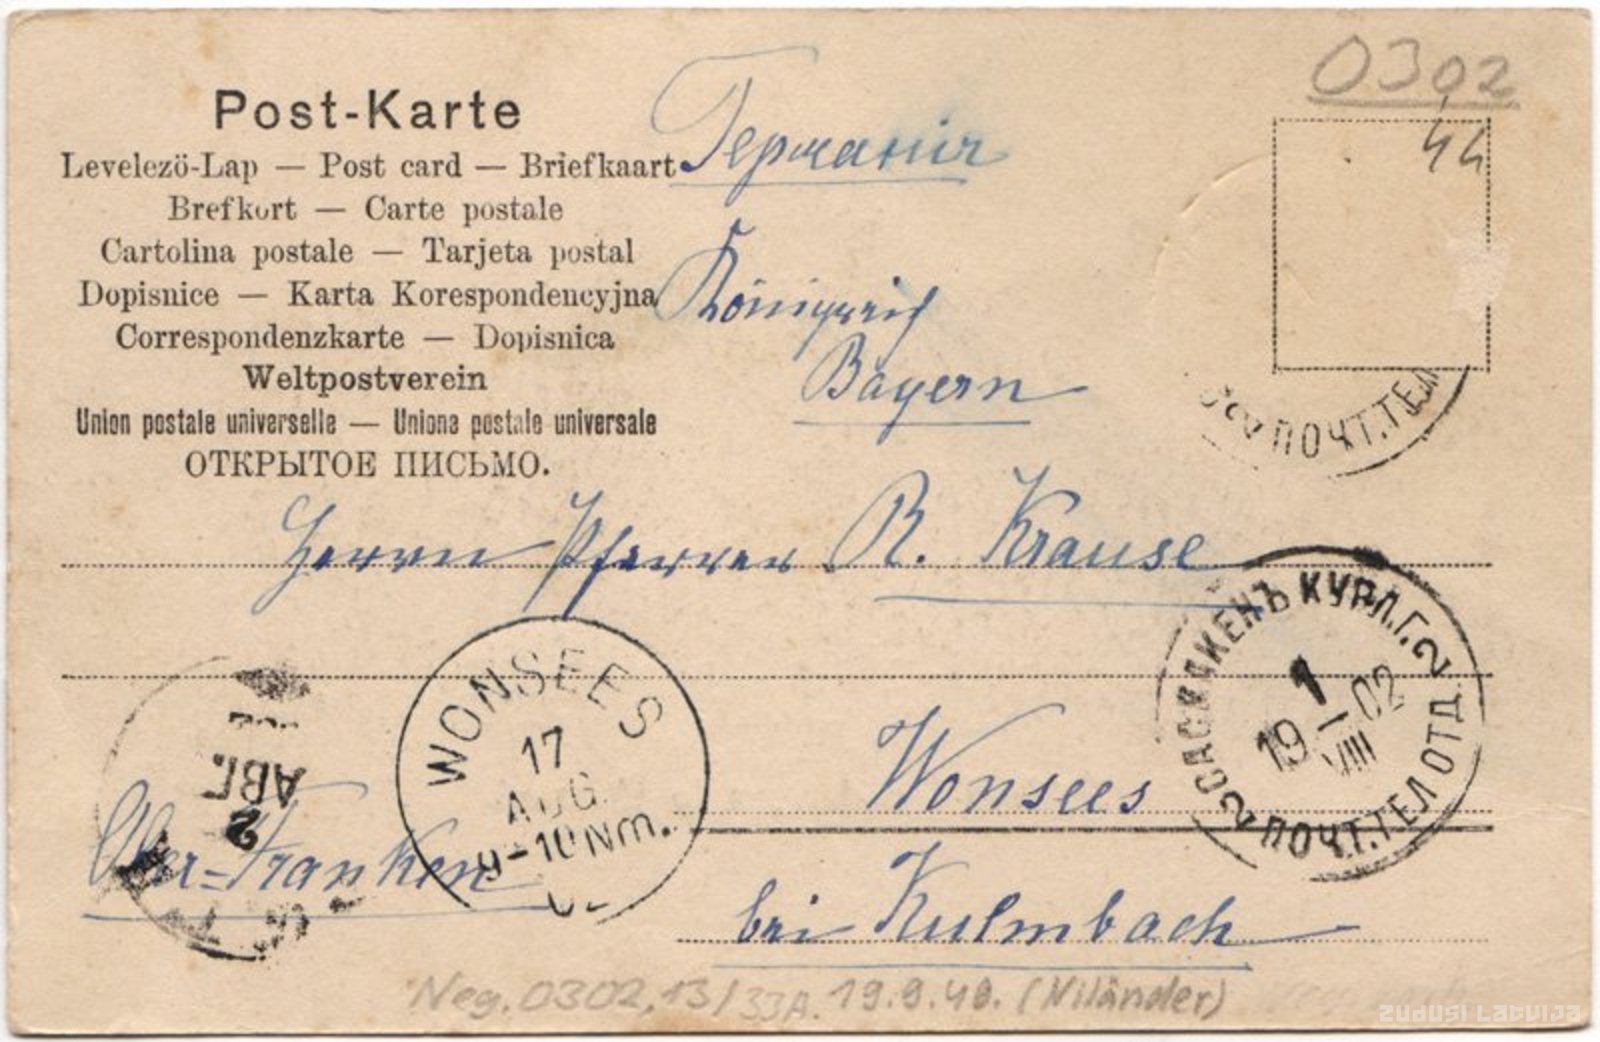 0302
44
Post-Karte
Levelezö-Lap — Post card — Briefkaart
Brefkort — Carte postale
Cartolina postale — Tarjeta postal
Dopisnice — Karta Korespondencyjna
Correspondenzkarte — Dopisnica
Weltpostverein
Union postale universelle — Unione postale universale
ОТКРЫТОЕ ПИСЬМО.
Германія
Königreich
Bayern
ПОЧТ.ТЕЛ
Herrn Pfarrer R. Krause
САСМАКЕНЪ КУРЛ.Г.
1
VIII
19 02
2 ПОЧТ.ТЕЛ ОТД. 2
WONSEES
17
AUG
9-10 Nm.
02
АВГ.
2
Wonsees
Ober-Franken
bei Kulmbach
Neg. 0302,13/33A. 19.9.40. (Niländer)
ZUDUSI LATVIJA